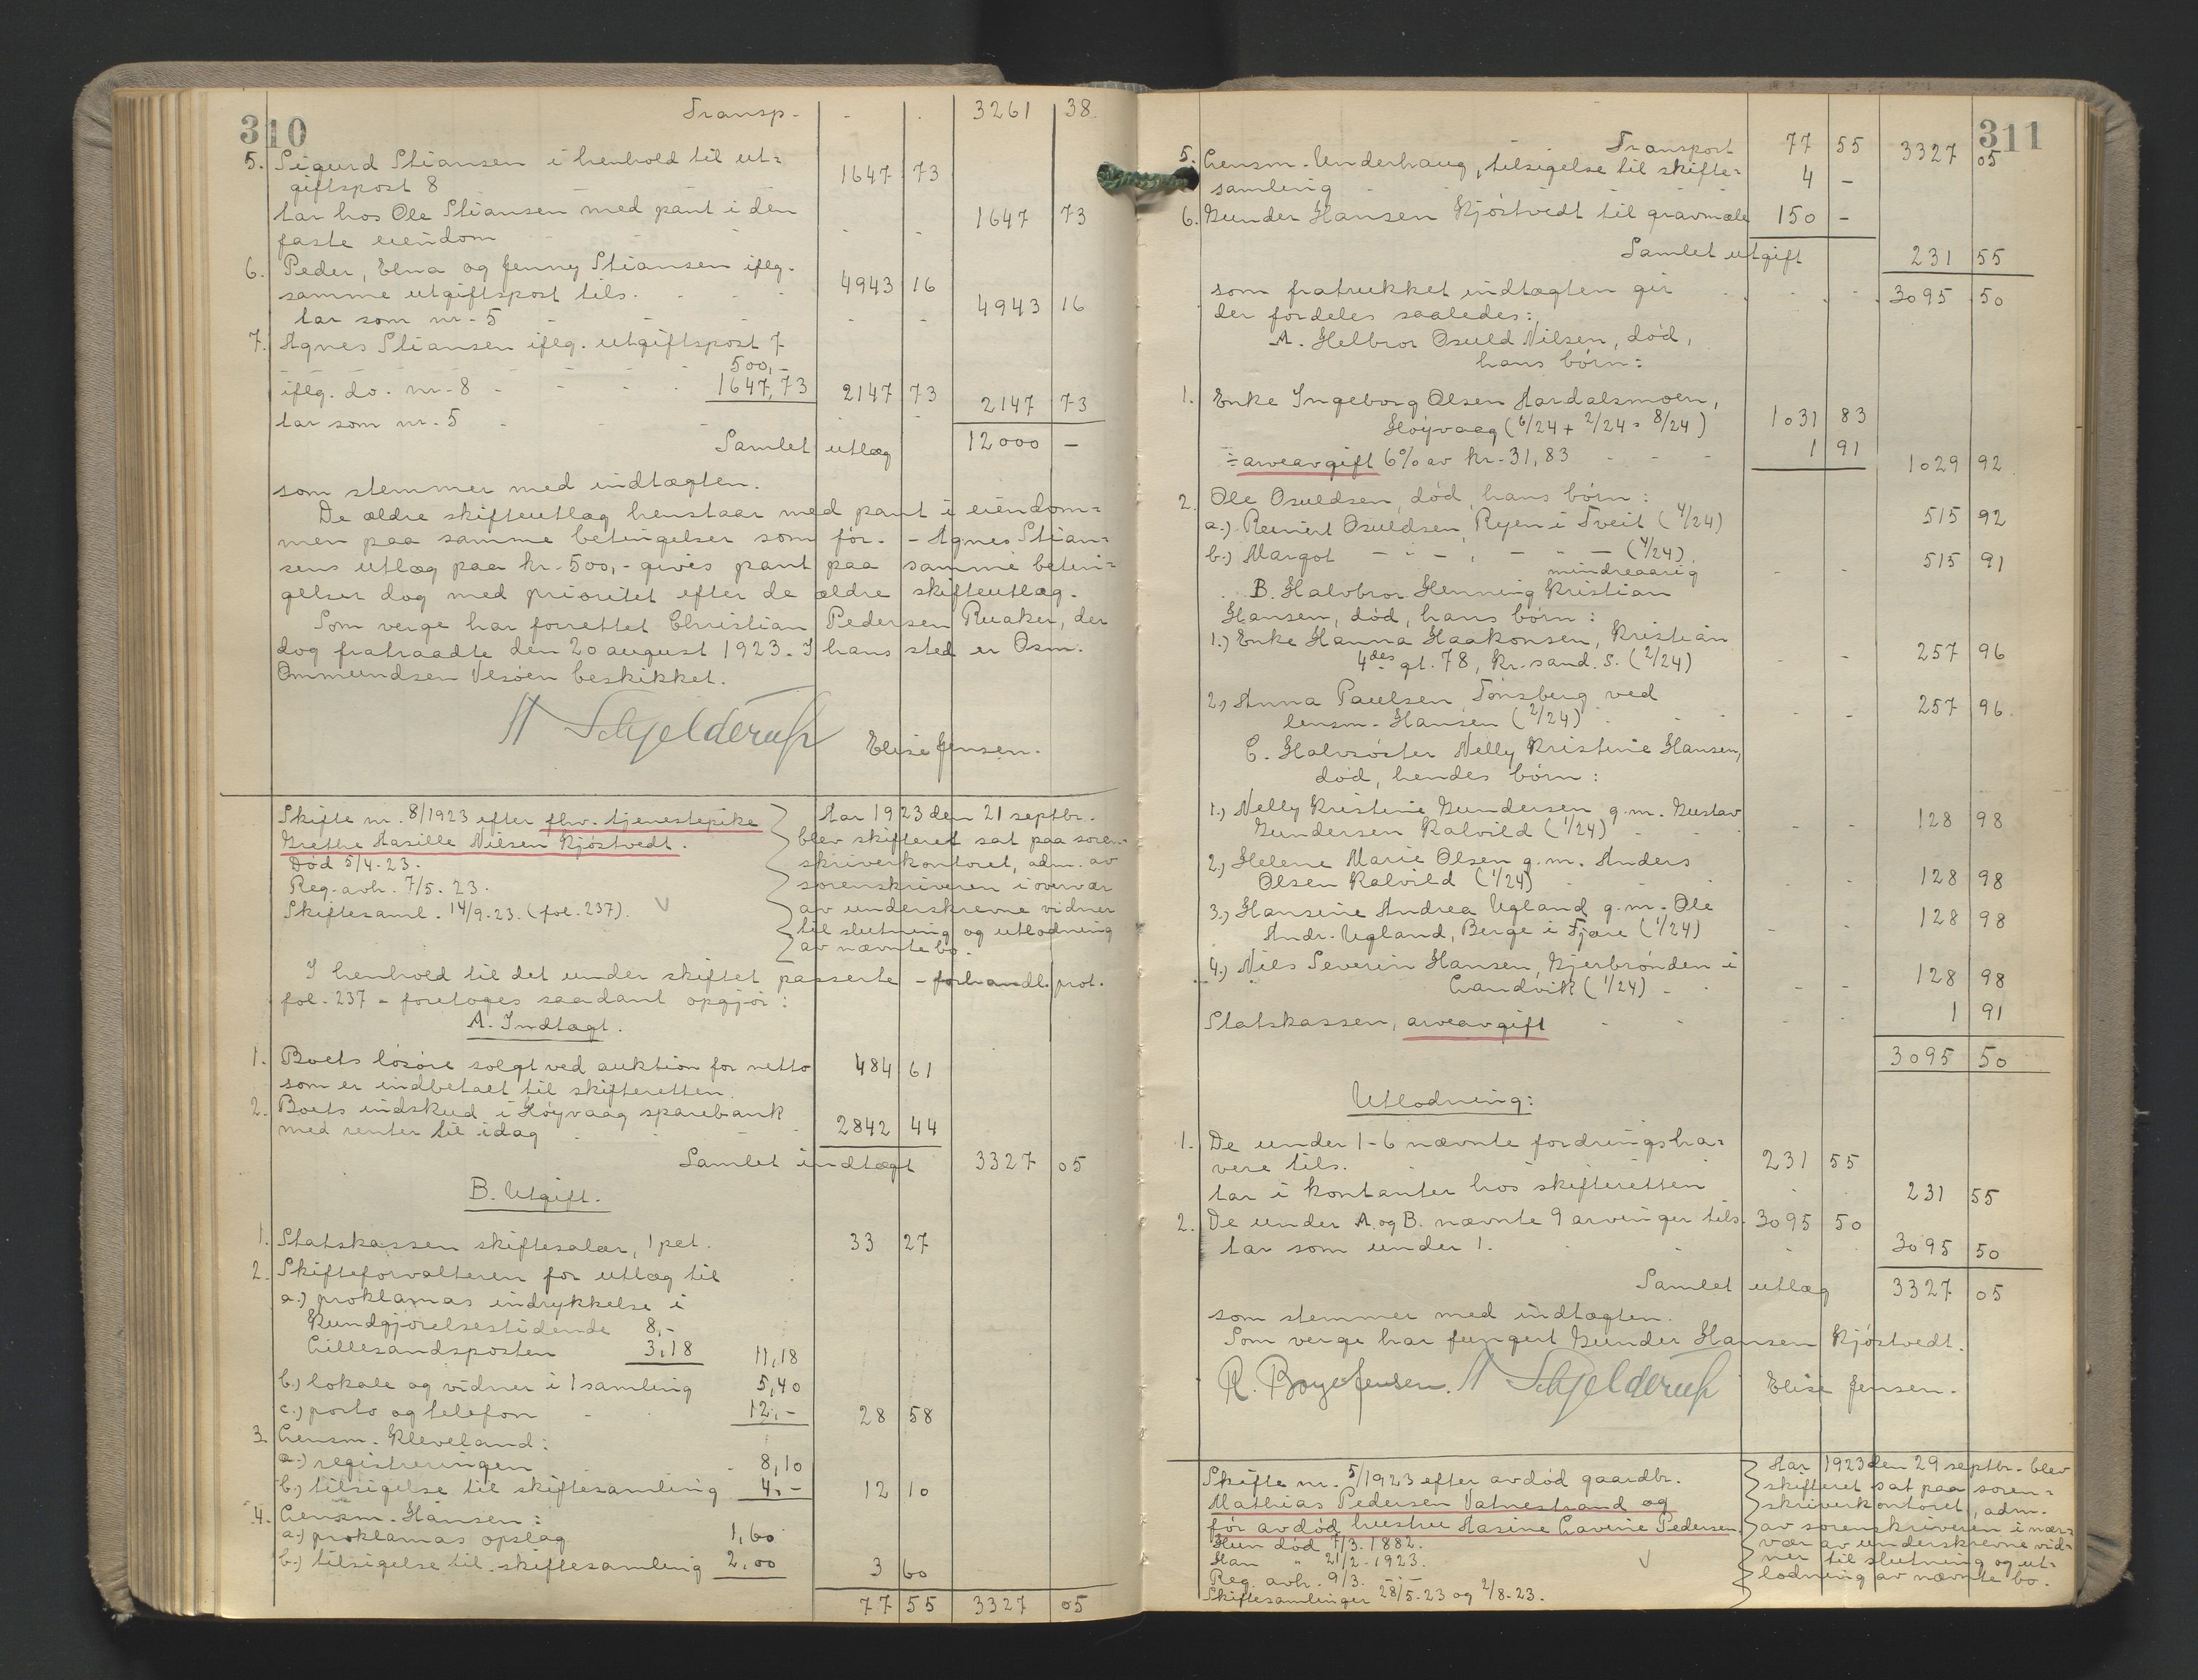 310
Transp. - . 3261 38
5. Sigurd Stiansen i henhold til ut=
giftspost 8 1647 73
tar hos Ole Stiansen med pant i den
faste eiendom - - 1647 73
6. Peder, Elna og Jenny Stiansen iflg.
samme utgiftspost tils. 4943 16
tar som nr. 5 - - 4943 16
7. Agnes Stiansen iflg. utgiftspost 7
500,-
iflg. do. nr. 8 - 1647,73 2147 73
tar som nr. 5 2147 73
Samlet utlæg 12000 -
som stemmer med indtægten.
De ældre skifteutlæg henstaar med pant i eiendom=
men paa samme betingelser som før. - Agnes Stian=
sens utlæg paa kr. 500,- gives pant paa samme betin=
gelser dog med prioritet efter de ældre skifteutlæg.
Som verge har forrettet Christian Pedersen Ruaker, der
dog fratraadte den 20 august 1923. I hans sted er Osm.
Ommundsen Vesøen beskikket.
A Schjelderup Elise Jensen.
Skifte nr. 8/1923 efter fhv. tjenestepike
Grethe Hasille Nilsen Kjøstvedt.
Død 5/4-23.
Reg. avh. 7/5-23.
Skiftesaml. 14/9-23. (fol. 237).
Aar 1923 den 21 septbr.
blev skifteret sat paa soren-
skriverkontoret, adm. av
sorenskriveren i overvær
av underskrevne vidner
til slutning og utlodning
av nævnte bo.
I henhold til det under skiftet passerte - forhandl. prot.
fol. 237 - foretoges saadant opgjør:
A. Indtægt.
1. Boets løsøre solgt ved auktion for netto 484 61
som er indbetalt til skifteretten.
2. Boets indskud i Høyvaag sparebank
med renter til idag 2842 44
Samlet indtægt 3327 05
B. Utgift.
1. Statskassen skiftesalær, 1 pct. 33 27
2. Skifteforvalteren for utlæg til
a.) proklamas indrykkelse i
Kundgjørelsestidende 8,-
Lillesandsposten 3,18 11,18
b.) lokale og vidner i 1 samling 5,40
c.) porto og telefon - 12,- 28 58
3. Lensm. Kleveland:
a.) registreringen 8,10
b.) tilsigelse til skiftesamling 4,- 12 10
4. Lensm. Hansen:
a.) proklamas opslag 1,60
b.) tilsigelse til skiftesamling 2,00 3 60
77 55 3327 05
311
Transport 77 55 3327 05
5. Lensm. Underhaug, tilsigelse til skifte=
samling 4 -
6. Gunder Hansen Kjøstvedt til gravmæle 150 -
Samlet utgift 231 55
som fratrukket indtægten gir 3095 50
der fordeles saaledes:
A. Helbror Osuld Nilsen, død,
hans børn:
1. Enke Ingeborg Olsen Hardalsmoen,
Høyvaag (6/24 + 2/24 = 8/24) 1031 83
÷ arveavgift 6% av kr. 31,83 1 91 1029 92
2. Ole Osuldsen, død, hans børn:
a.) Reinert Osuldsen, Ryen i Tveit (4/24) 515 92
b.) Margot - " - , - " - (4/24)
mindreaarig 515 91
B. Halvbror Henning Kristian
Hansen, død, hans børn:
1.) Enke Hanna Haakonsen, Kristian
4des gt. 78, Kr.sand. S. (2/24) 257 96
2.) Anna Paulsen, Tønsberg ved
lensm. Hansen (2/24) 257 96
C. Halvsøster Nelly Kristine Hansen,
død, hendes børn:
1.) Nelly Kristine Gundersen g.m. Gustav
Gundersen Kalvild (1/24) 128 98
2.) Helene Marie Olsen g.m. Anders
Olsen Kalvild (1/24) 128 98
3.) Hansine Andrea Ugland g.m. Ole
Andr. Ugland, Berge i Fjære (1/24) 128 98
4.) Nils Severin Hansen, Gjerbrønden i
Landvik (1/24) 128 98
Statskassen, arveavgift 1 91
3095 50
Utlodning:
1. De under 1-6 nævnte fordringsha=
vere tils. 231 55
tar i kontanter hos skifteretten 231 55
2. De under A. og B. nævnte 9 arvinger tils. 3095 50
tar som under 1. 3095 50
Samlet utlæg 3327 05
som stemmer med indtægten.
Som verge har fungert Gunder Hansen Kjøstvedt.
R. Boye Jensen. A Schjelderup Elise Jensen.
Skifte nr. 5/1923 efter avdød gaardbr.
Mathias Pedersen Vatnestrand og
før avdød hustru Hasine Lavine Pedersen.
Hun død 7/3.1882.
Han " 21/2-1923.
Reg. avh. 9/3. -:-
Skiftesamlinger 28/5-23 og 2/8-23.
Aar 1923 den 29 septbr. blev
skifteret sat paa soren=
skriverkontoret, adm.
av sorenskriveren i nær=
vær av underskrevne vid=
ner til slutning og ut=
lodning av nævnte bo.